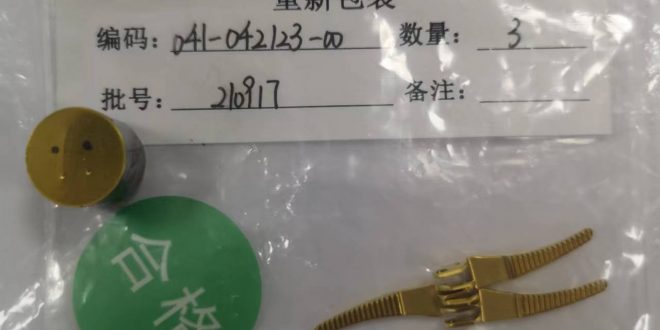 重新包装
编码: 041-042123-00 数量: 3
批号: 210917 备注:
合格